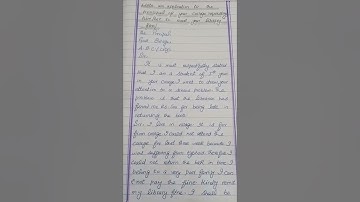 Write an application to the
principal of your college requesting
him/her to remit your library
fine.
The Principal
Govt College
A B C / City
Sir,
It is most respectfully stated
that I am a student of 1st year
in your college. I want to draw your
attention to a serious problem. The
problem is that the librarian has
fined me Rs for being late in
returning the book.
Sir I live in village. It is far
from college. I could not attend the
college for last three week because I
was suffering from typhoid therefore I
could not return the book in time. I
belong to a very poor family. I can
not pay the fine. Kindly remit
my library fine. I shall be